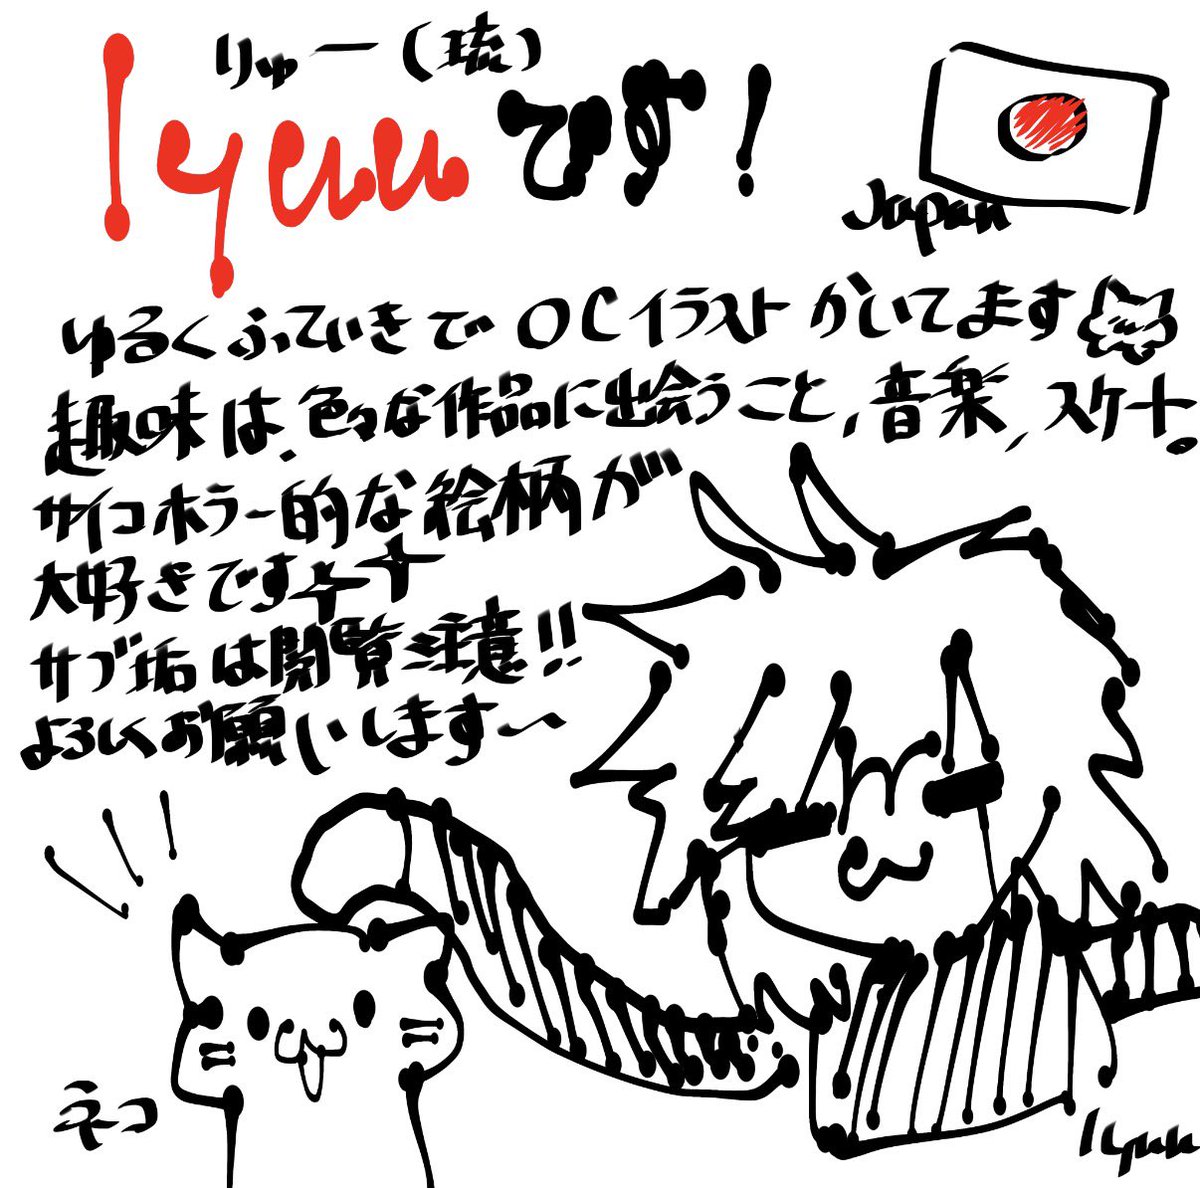 りゅー(琉)
lyuuです!
Japan
ゆるくふていきでOCイラストかいてます
趣味は、色々な作品に出会うこと,音楽,スケート。
サイコホラー的な絵柄が
大好きです
サブ垢は閲覧注意!!
よろしくお願いします〜
ネコ
lyuu